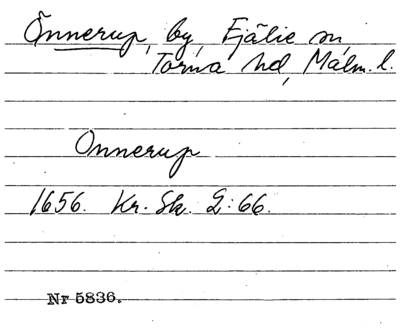 Önnerup, by, Fjälie sn,
Torna hd, Malm. l.
Onnerup
1656. Kr. Sk. 2:66.
Nr 5836.